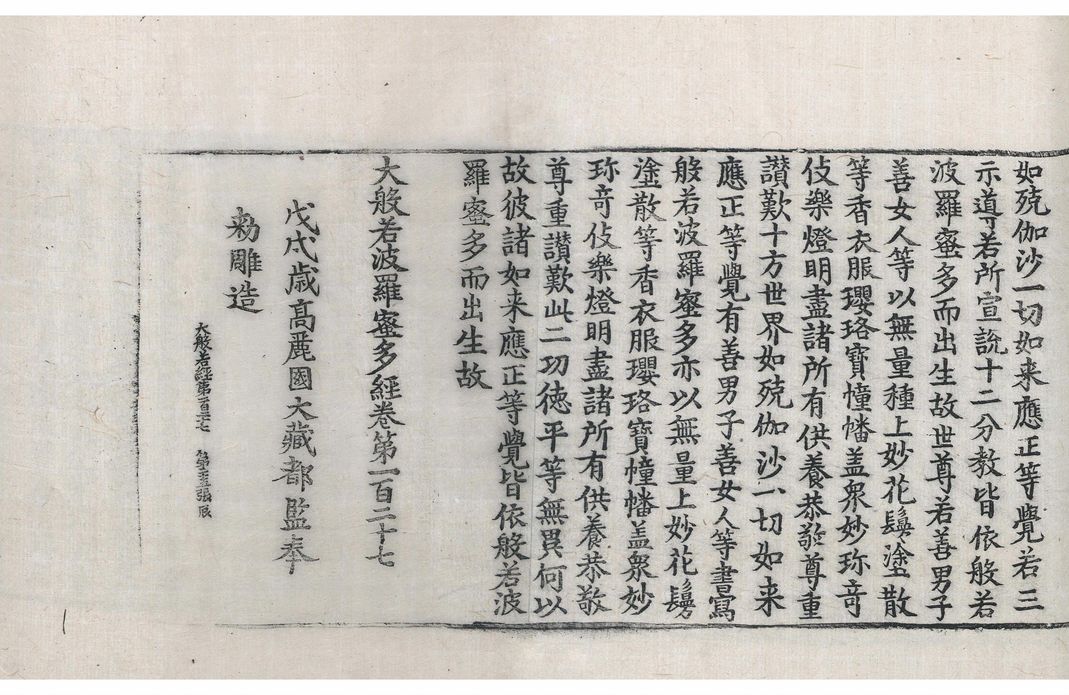 如殑伽沙一切如来應正等覺若三
示導若所宣說十二分教皆依般若
波羅蜜多而出生故世尊若善男子
善女人等以無量種上妙花鬘塗散
等香衣服瓔珞寶幢幡盖衆妙珎竒
伎樂燈明盡諸所有供養恭敬尊重
讃歎十方世界如殑伽沙一切如来
應正等覺有善男子善女人等書寫
般若波羅蜜多亦以無量上妙花鬘
塗散等香衣服瓔珞寶幢幡盖衆妙
珎竒伎樂燈明盡諸所有供養恭敬
尊重讃歎此二功德平等無異何以
故彼諸如来應正等覺皆依般若波
羅蜜多而出生故
大般若波羅蜜多經卷第一百二十七
戊戌歲髙麗國大藏都監奉
勑雕造
大般若經第一百二十七 第二十五張 辰